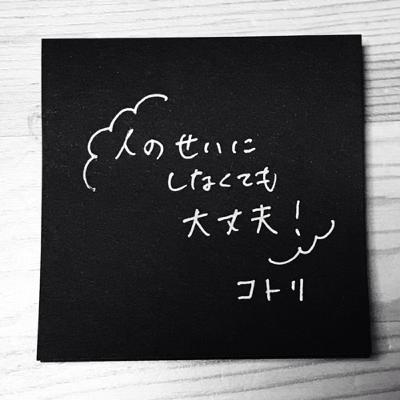 人のせいに
しなくても
大丈夫!
コトリ